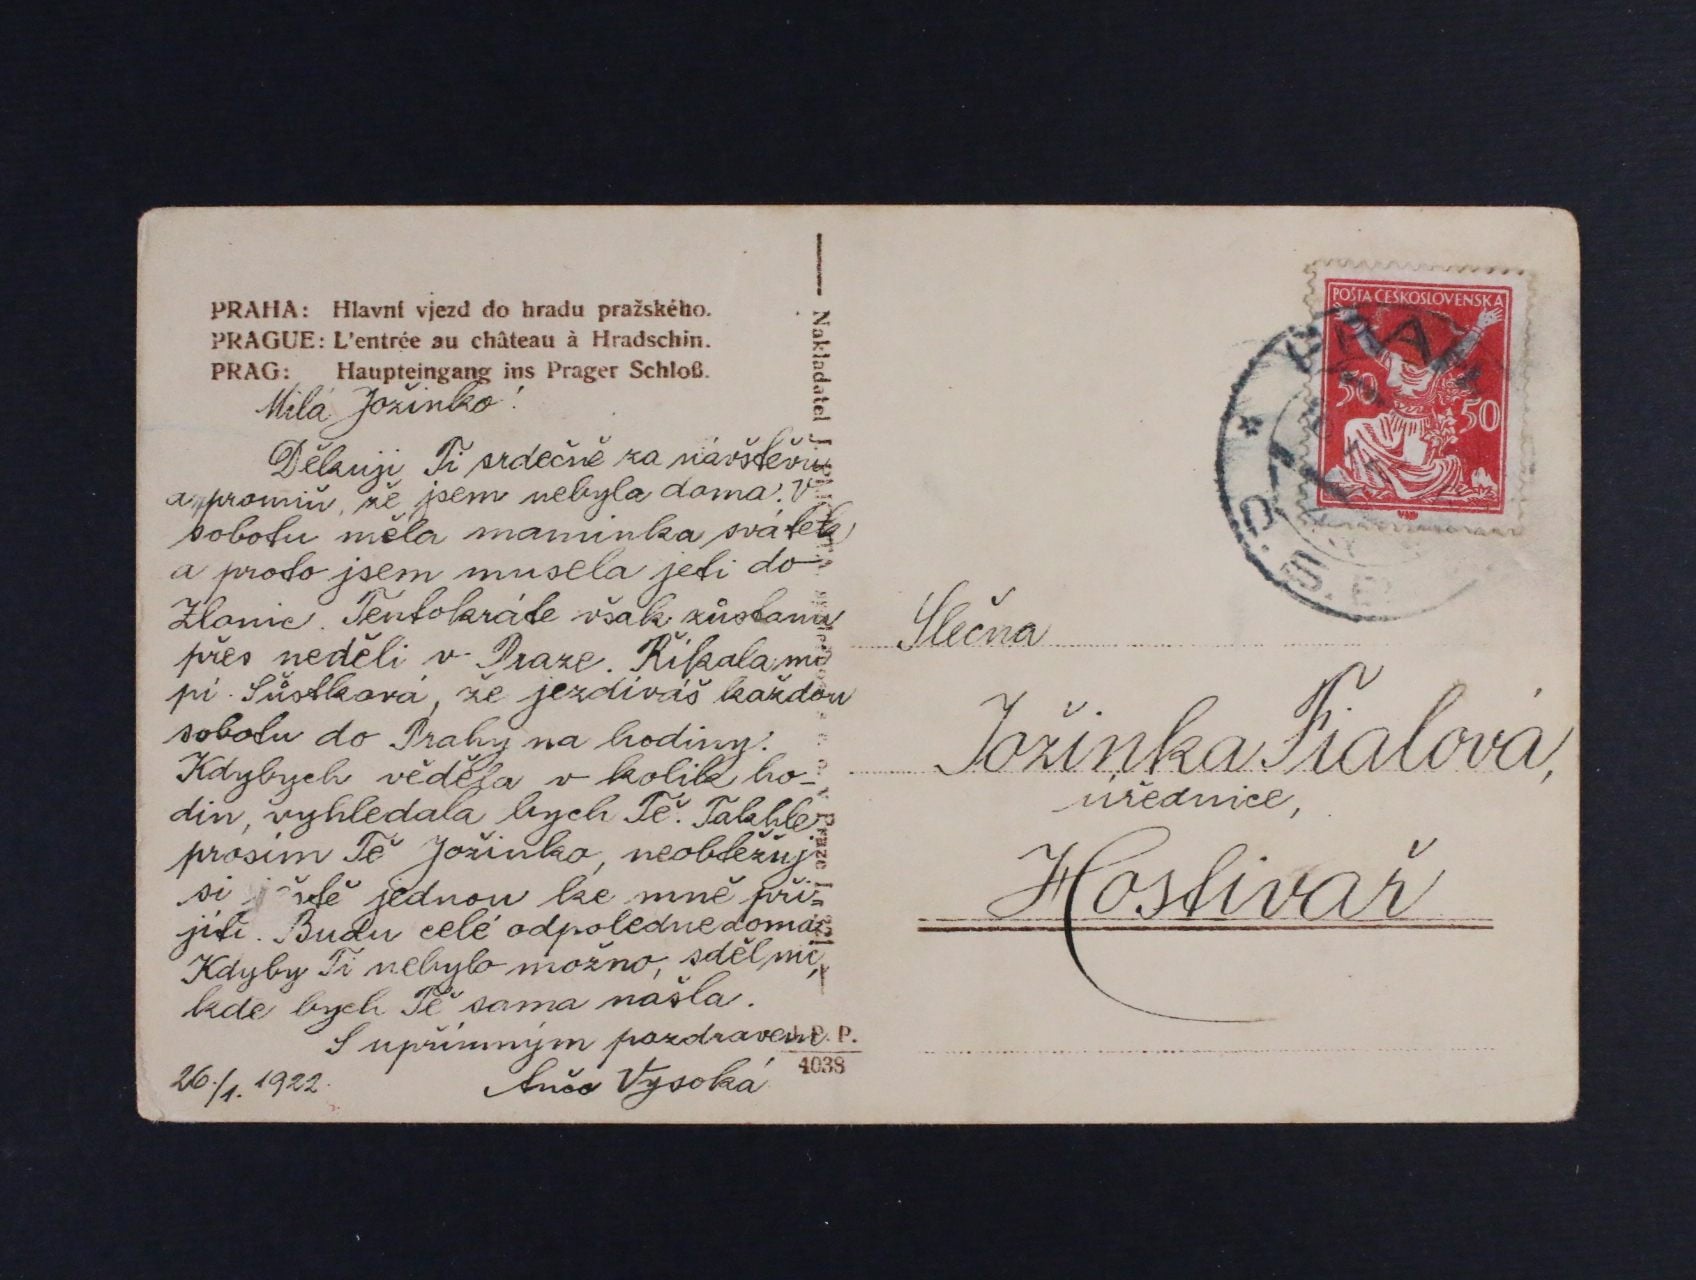 PRAHA: Hlavní vjezd do hradu pražského.
PRAGUE: L'entrée au château à Hradschin.
PRAG: Haupteingang ins Prager Schloß.
Milá Jožinko!
Děkuji Ti srdečně za návštěvu
a promiň, že jsem nebyla doma. V
sobotu měla maminka svátek
a proto jsem musela jeti do
Zlonic. Tentokráte však zůstanu
přes neděli v Praze. Říkala mi
pí. Šůstková, že jezdíváš každou
sobotu do Prahy na hodiny.
Kdybych věděla v kolik ho-
din, vyhledala bych Tě. Takhle
prosím Tě Jožinko, neobtěžuj
si ještě jednou ke mně při-
jíti. Budu celé odpoledne doma.
Kdyby Ti nebylo možno, sděl mi,
kde bych Tě sama našla.
S upřímným pozdravem
26./1. 1922. Anča Vysoká
Nakladatel J.
Praze
P. P.
4038
POŠTA ČESKOSLOVENSKÁ
50
50
PRAHA
Č.S.P.
Slečna
Jožinka Fialová,
úřednice,
Hostivař